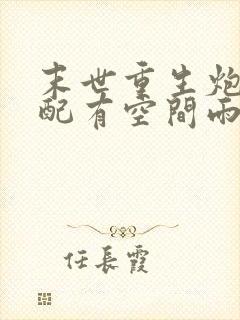 末世重生炮
配有空間兩
任長霞